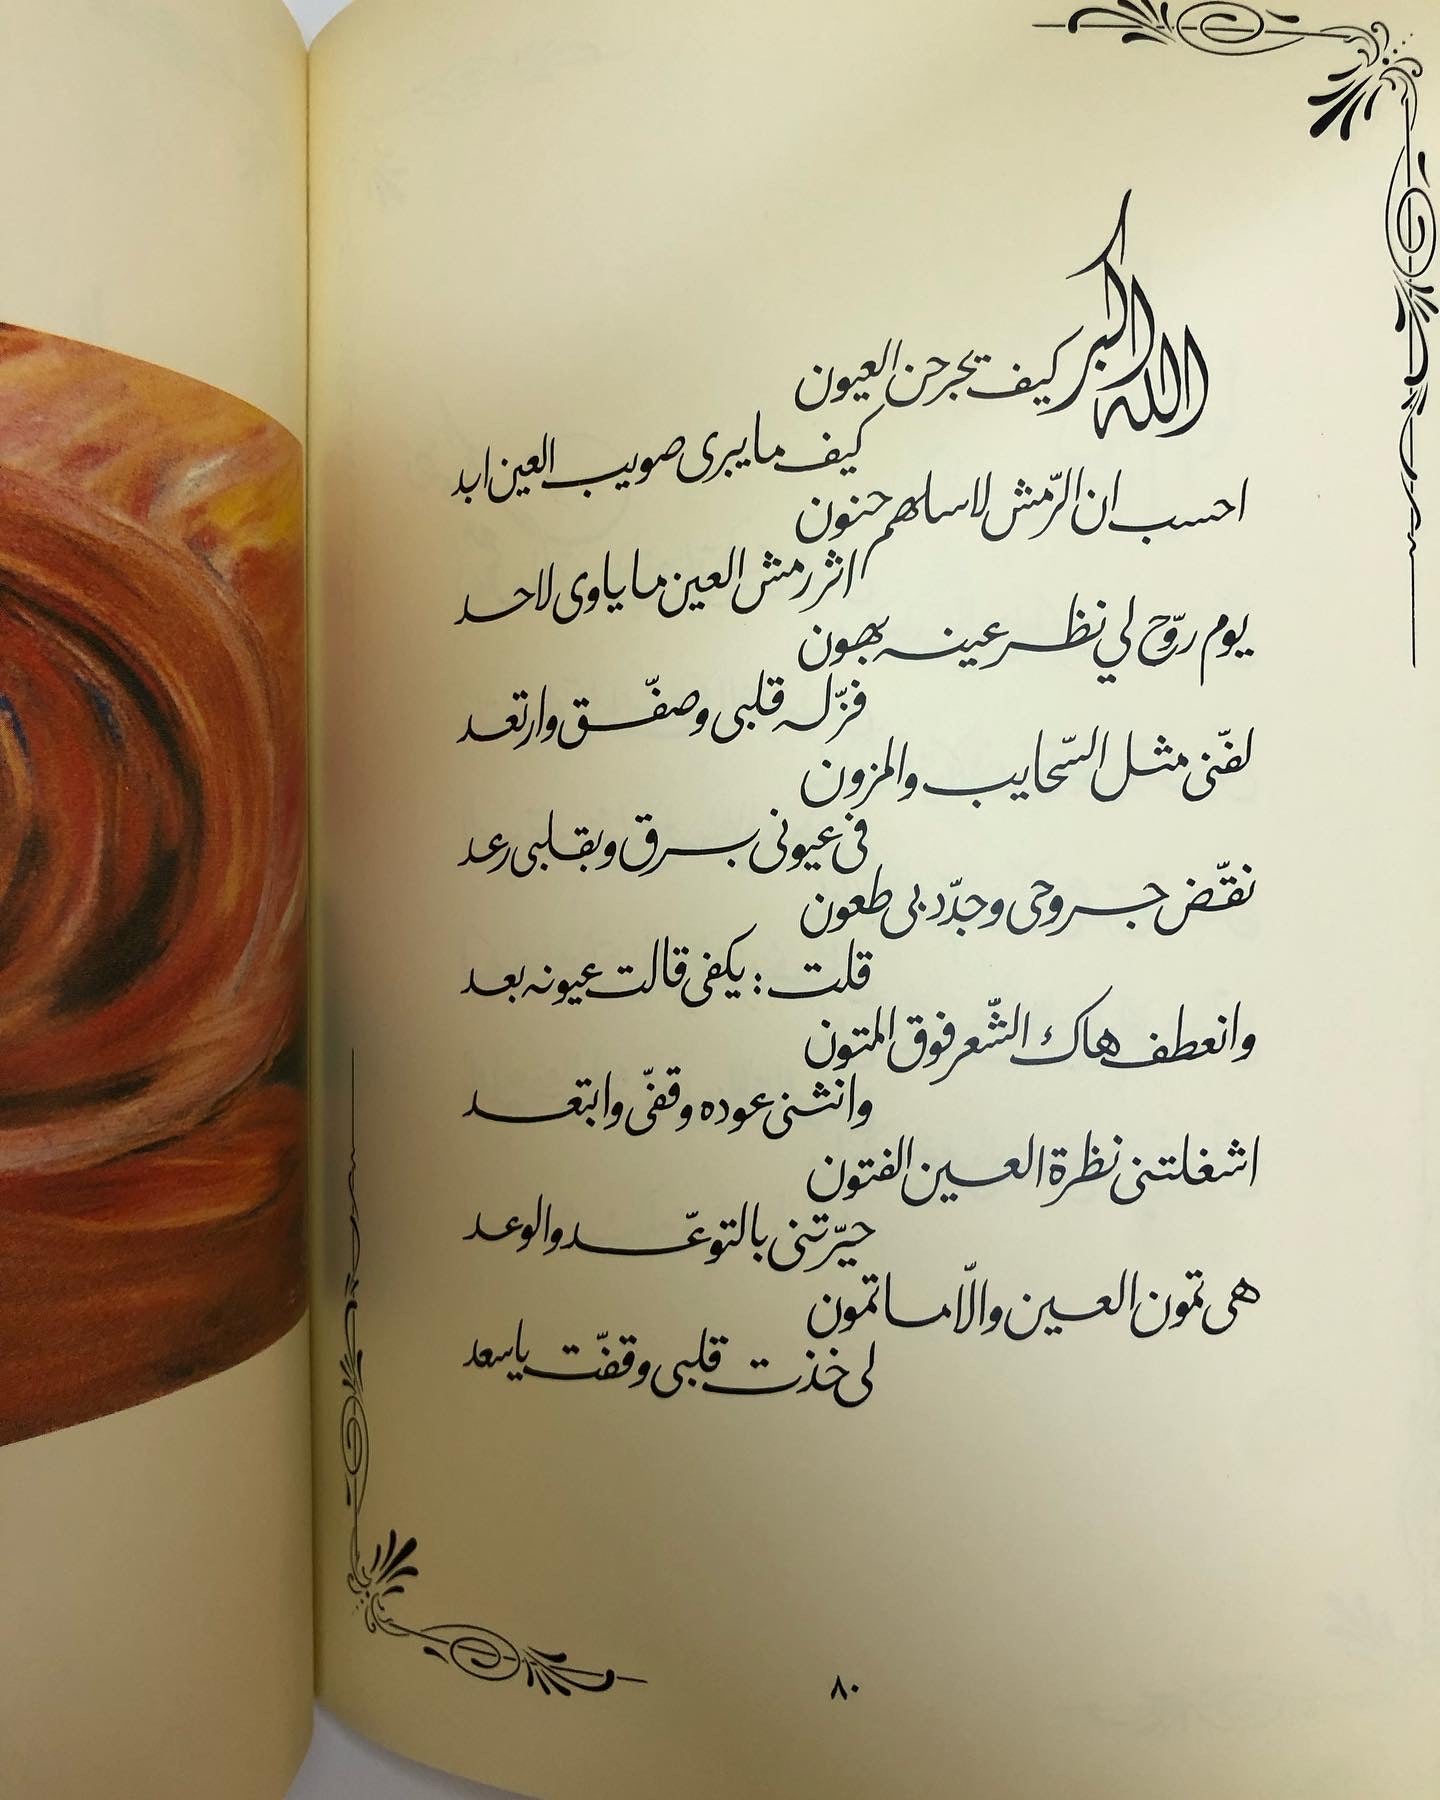 الله اكبر كيف تجرحن العيون
كيف ما يبرى صويب العين ابد
احسب ان الرّمش لا سلهم حنون
اثر رمش العين ما ياوى لاحد
يوم روّح لي نظر عينه بهون
فزّ له قلبى وصفّق وارتعد
لفّنى مثل السّحايب والمزون
فى عيونى برق وبقلبى رعد
نقّض جروحى وجدّد بى طعون
قلت : يكفى قالت عيونه بعد
وانعطف هاك الشّعر فوق المتون
وانثنى عوده وقفّى وابتعد
اشغلتنى نظرة العين الفتون
حيّرتنى بالتوعّد والوعد
هى تمون العين والّا ما تمون
لى خذت قلبى وقفّت يا سعد
٨٠